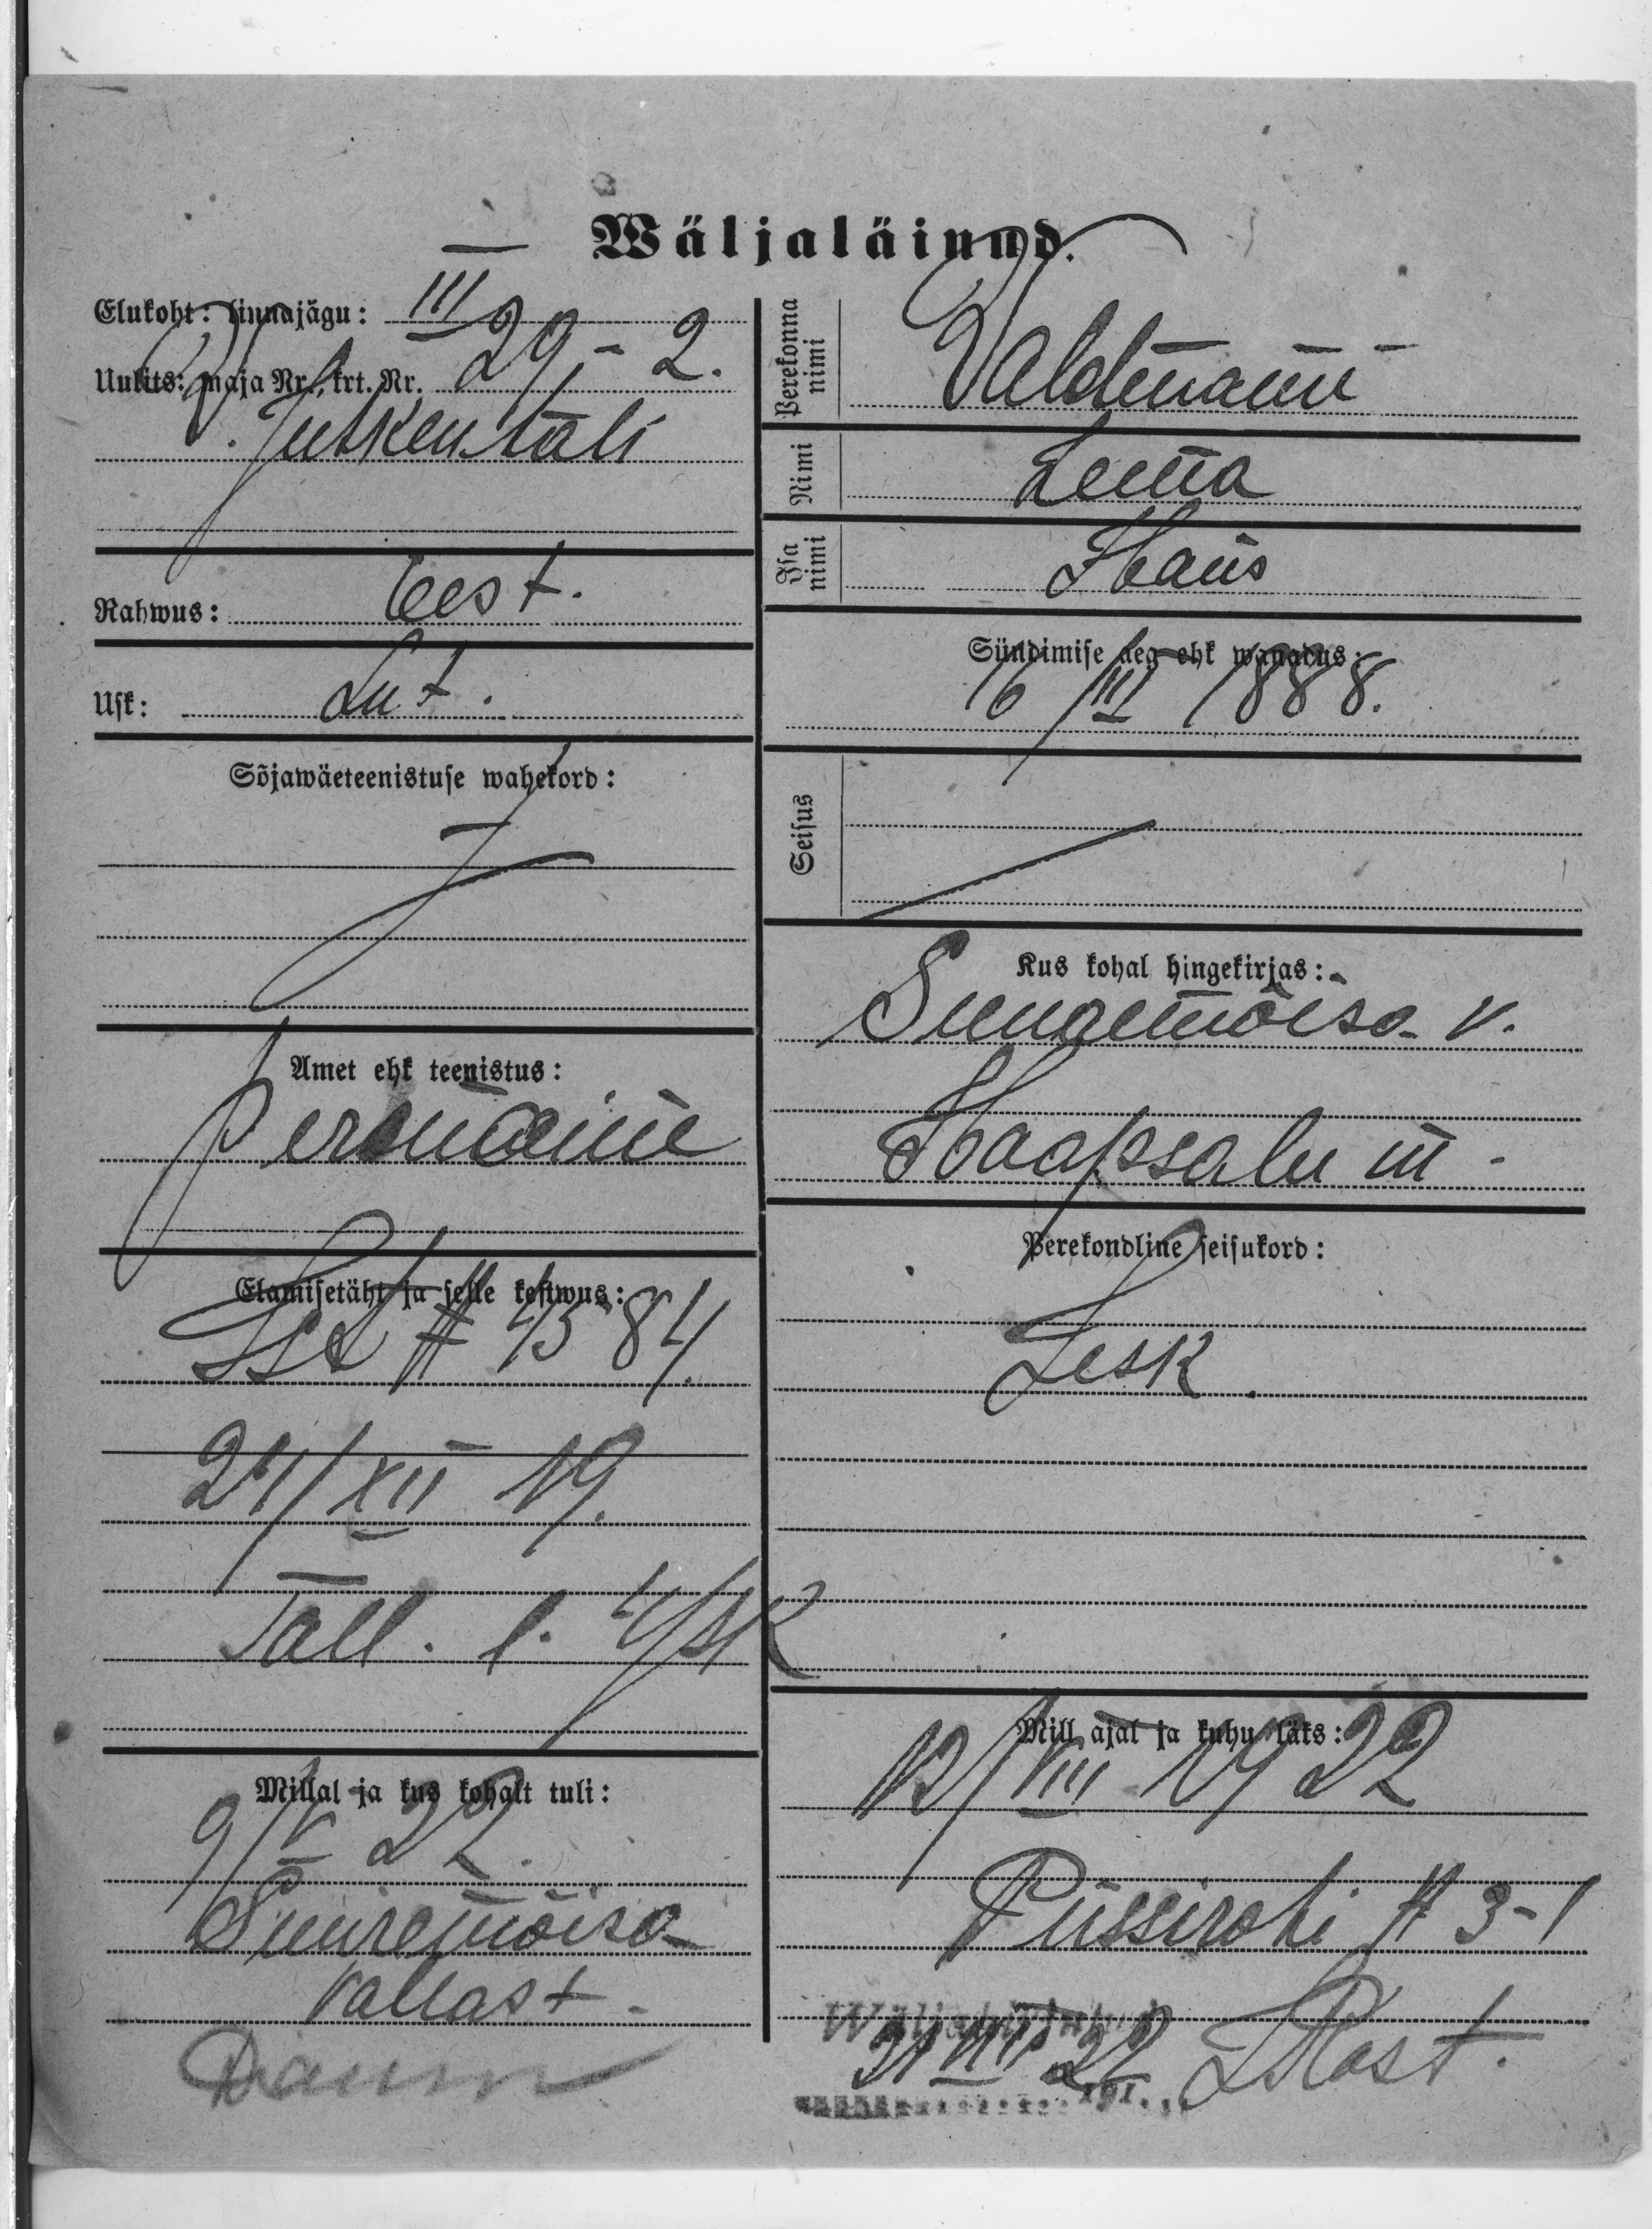 Wäljaläinud.
Elukoht: linnajagu: III
Uulits: maja Nr., krt. Nr. 29 - 2.
V. Juhkentali
Rahwus: Eest.
Usk: Lut.
Sõjawäeteenistuse wahekord:
Amet ehk teenistus:
perenaine
Elamisetäht ja selle kestwus:
№ 4584.
24/XII 19.
Tall. l. 4/jsk
Millal ja kus kohalt tuli:
9/V 22.
Suuremõisa
vallast
Perekonna nimi
Valdmann
Nimi
Leena
Isa nimi
Hans
Sündimise aeg ehk wanadus:
16/III 1888.
Seisus
Kus kohal hingekirjas:
Suuremõisa v.
Haapsalu m.
Perekondline seisukord:
Lesk.
Mill ajal ja kuhu läks:
12/VIII 1922
Püssirohi № 3-1
31 VIII 22
191